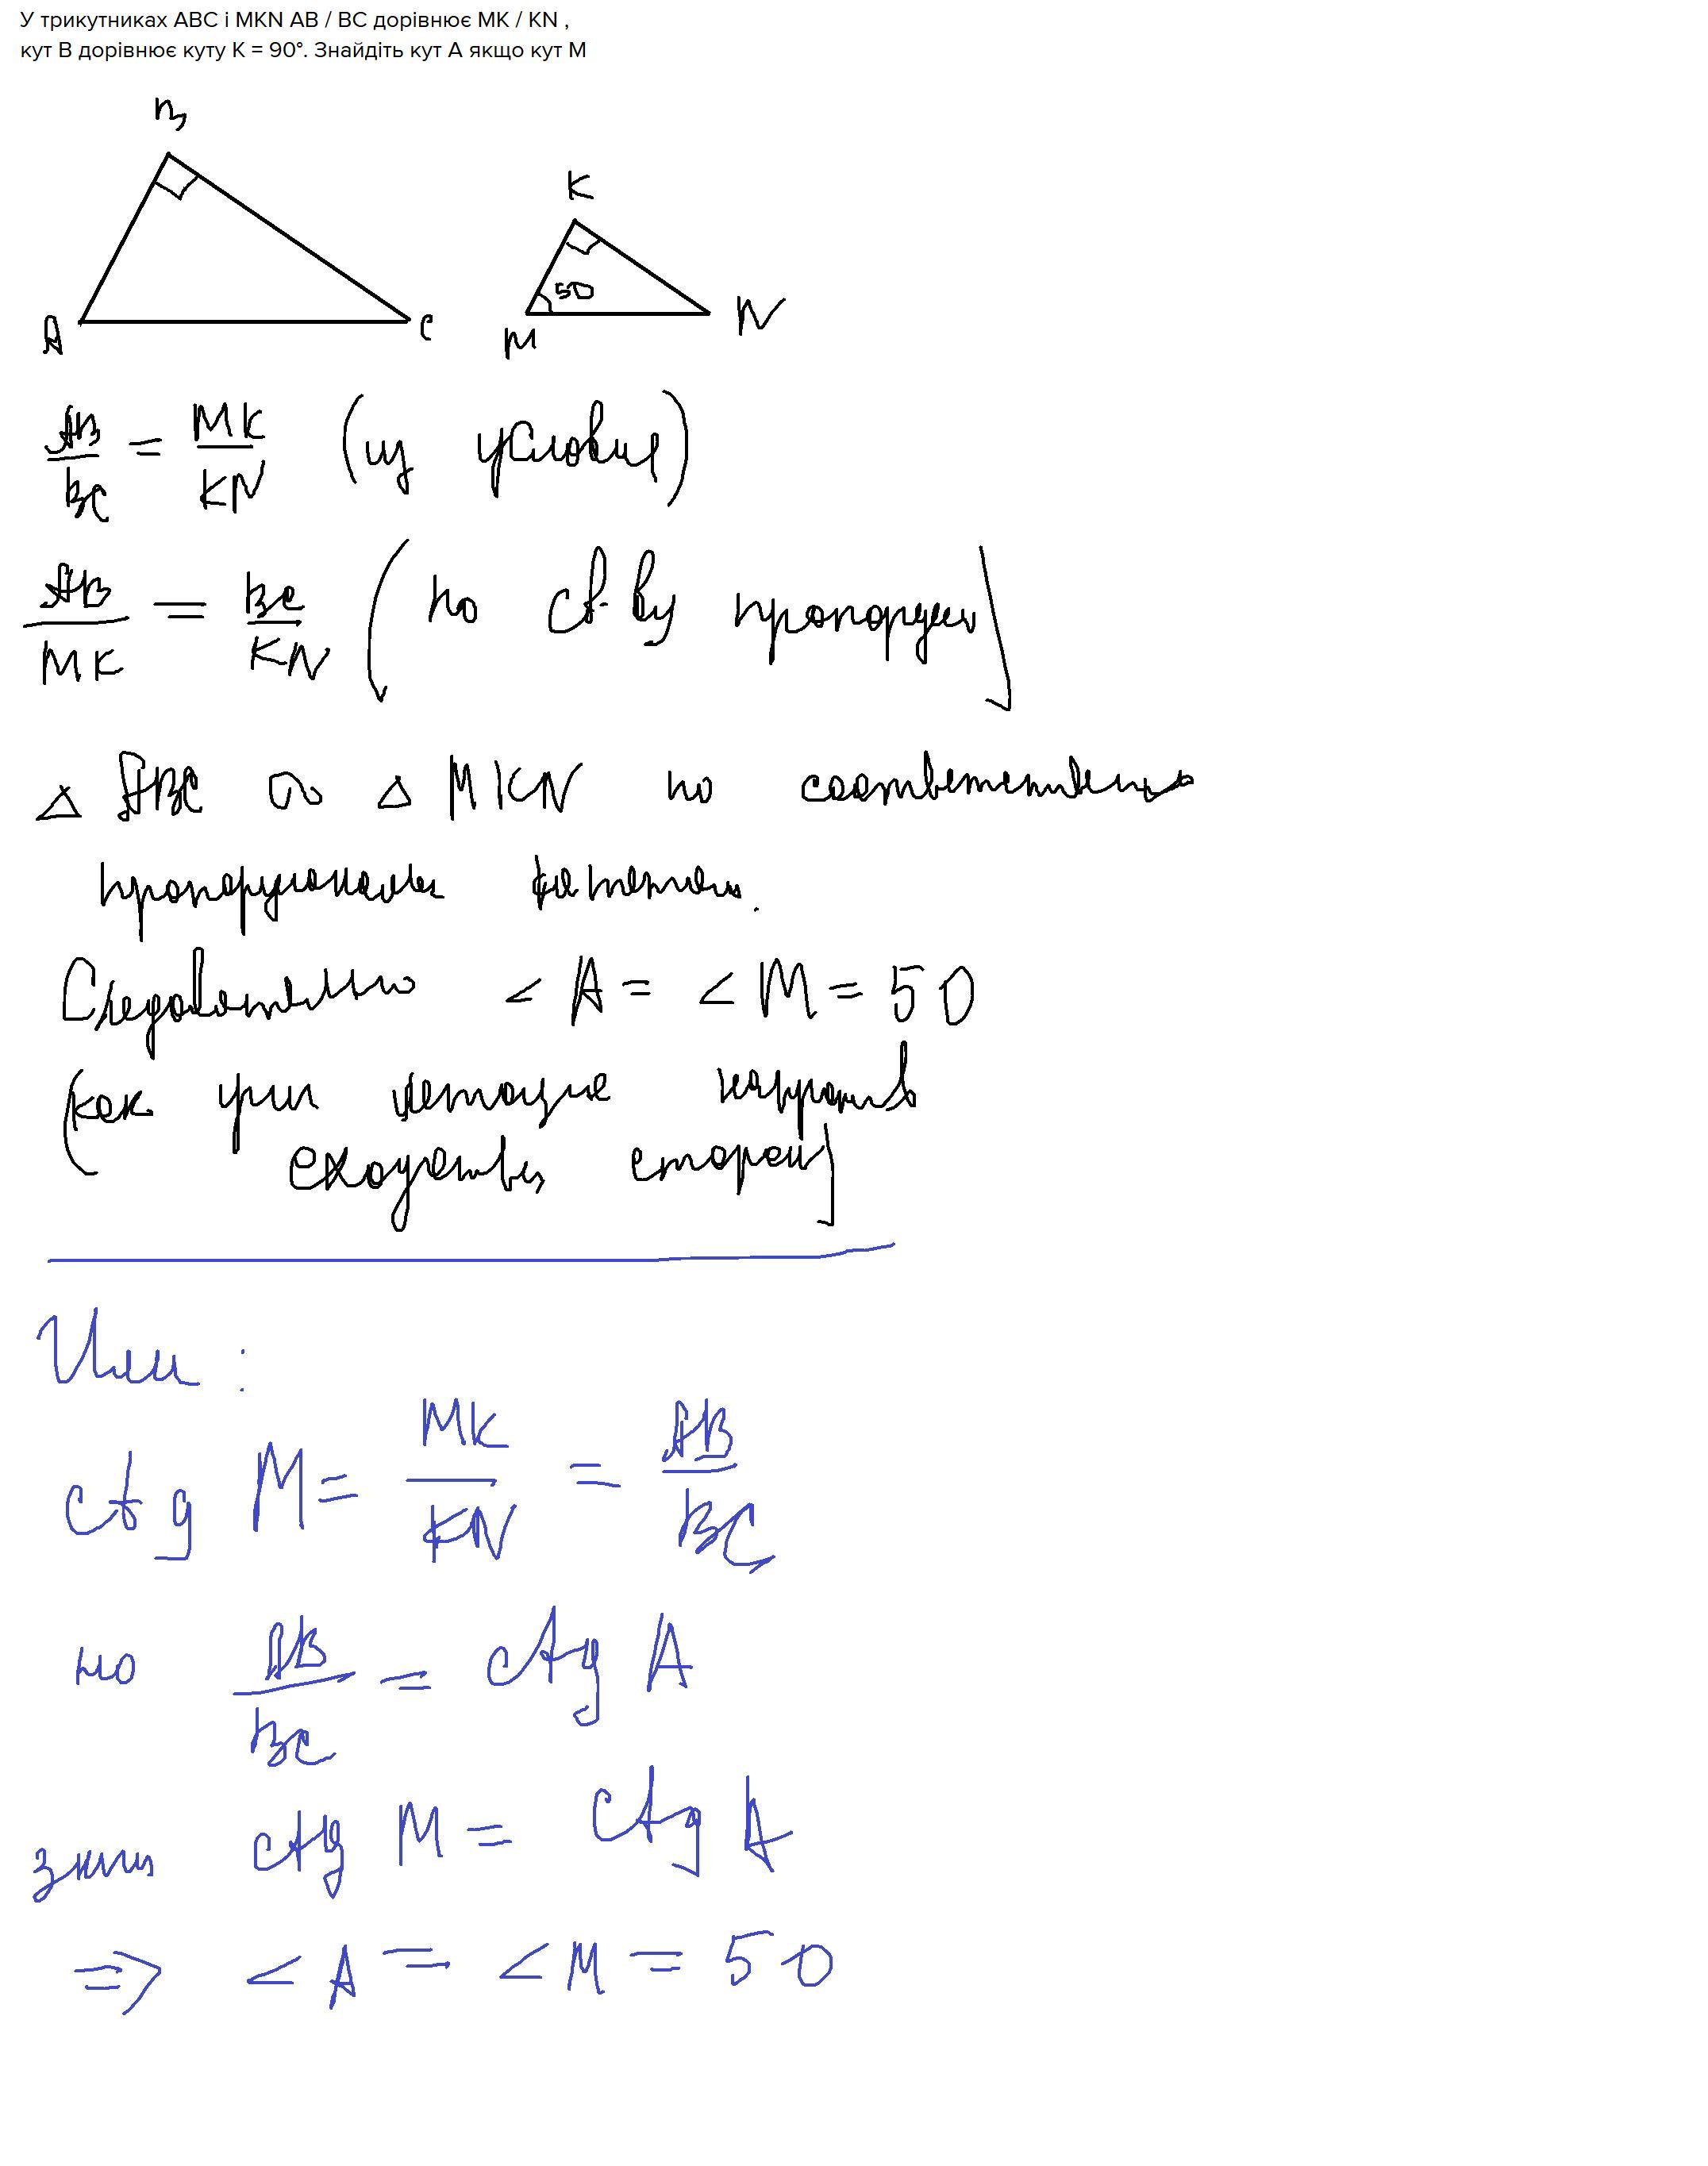 У трикутниках ABC і MKN AB / BC дорівнює MK / KN ,
кут B дорівнює куту K = 90°. Знайдіть кут A якщо кут M
B
K
50
A
C
M
N
AB/BC = MK/KN (из условия)
AB/MK = BC/KN (по св-ву пропорции)
△ ABC ∾ △ MKN по соответственно
пропорциональн катетам.
Следовательно ∠A = ∠M = 50
(как угли лежащие напротив
сходств. сторон)
Или :
ctg M = MK/KN = AB/BC
но AB/BC = ctg A
знач ctg M = ctg A
=> ∠A = ∠M = 50